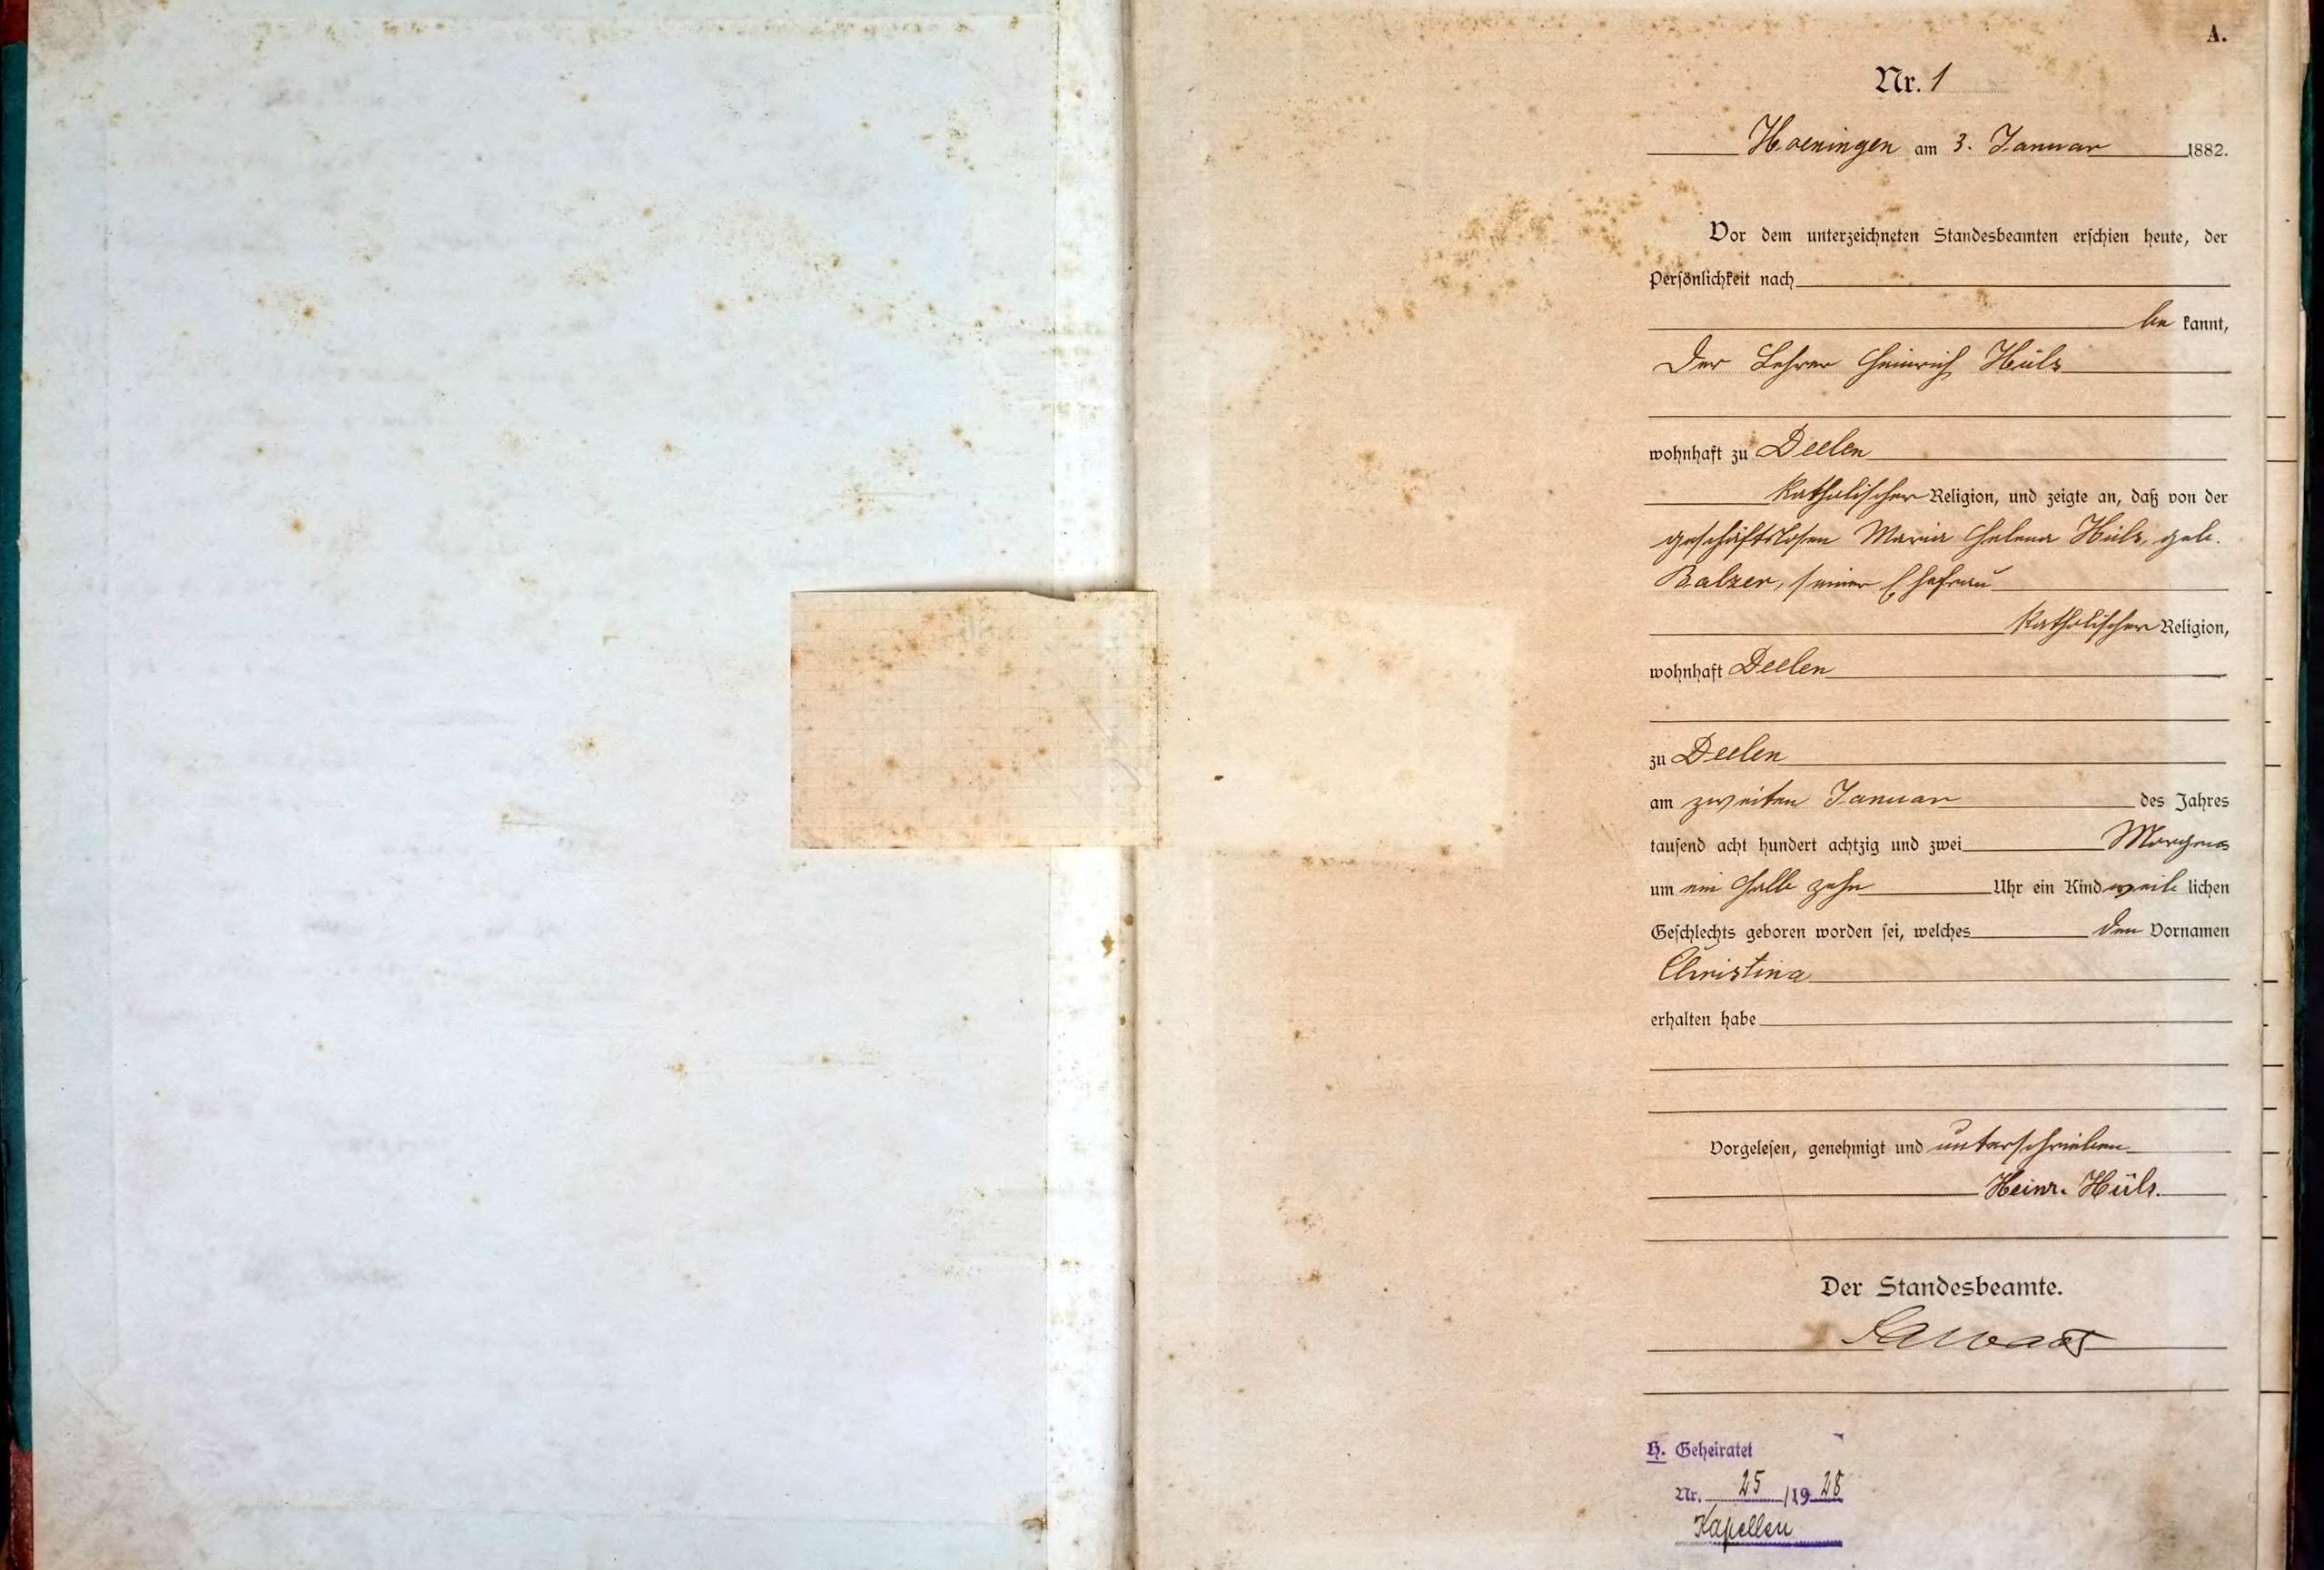 A.
Nr. 1
Hoeningen am 3. Januar 1882.
Vor dem unterzeichneten Standesbeamten erschien heute, der
Persönlichkeit nach
be kannt,
der Lehrer Heinrich Hüls
wohnhaft zu Deelen
katholischer Religion, und zeigte an, daß von der
geschäftslosen Maria Helena Hüls, geb.
Balzer, seiner Ehefrau
katholischer Religion,
wohnhaft Deelen
zu Deelen
am zweiten Januar des Jahres
tausend acht hundert achtzig und zwei Morgens
um ein halb zehn Uhr ein Kind weib lichen
Geschlechts geboren worden sei, welches den Vornamen
Christina
erhalten habe
Vorgelesen, genehmigt und unterschrieben
Heinr. Hüls.
Der Standesbeamte.
H. Geheiratet
Nr. 25 /19 28
Kapellen